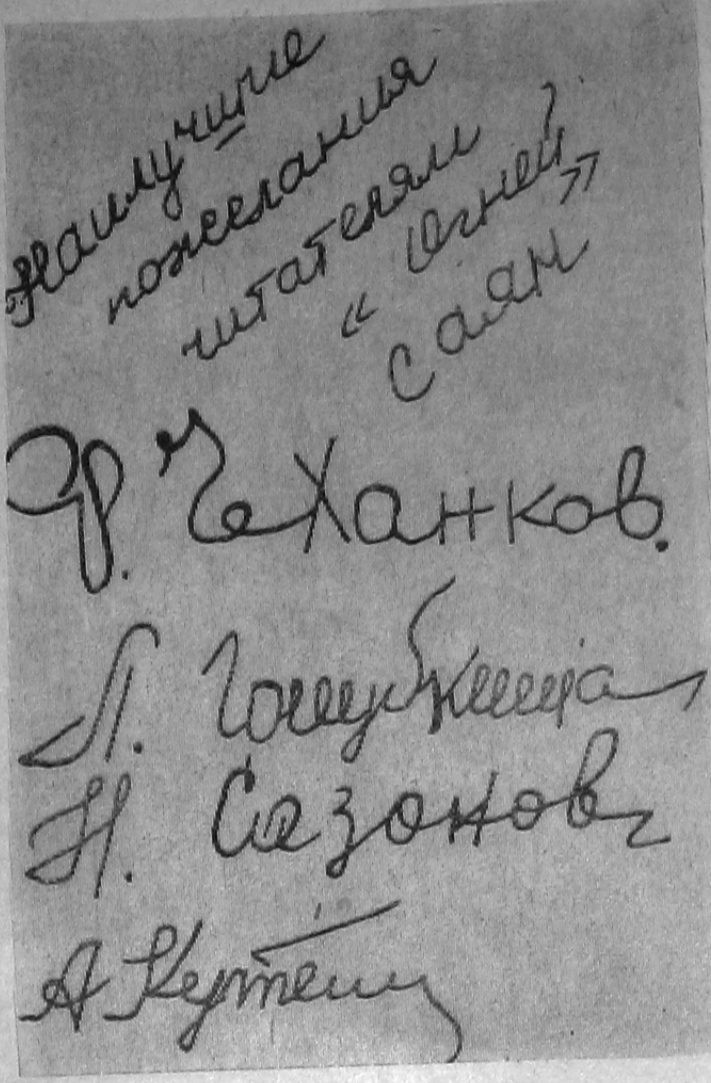 Наилучшие
пожелания
читателям
« Огней
Саян »
Ф. Чеханков.
Л. Голубкина
Н. Сазонов
А